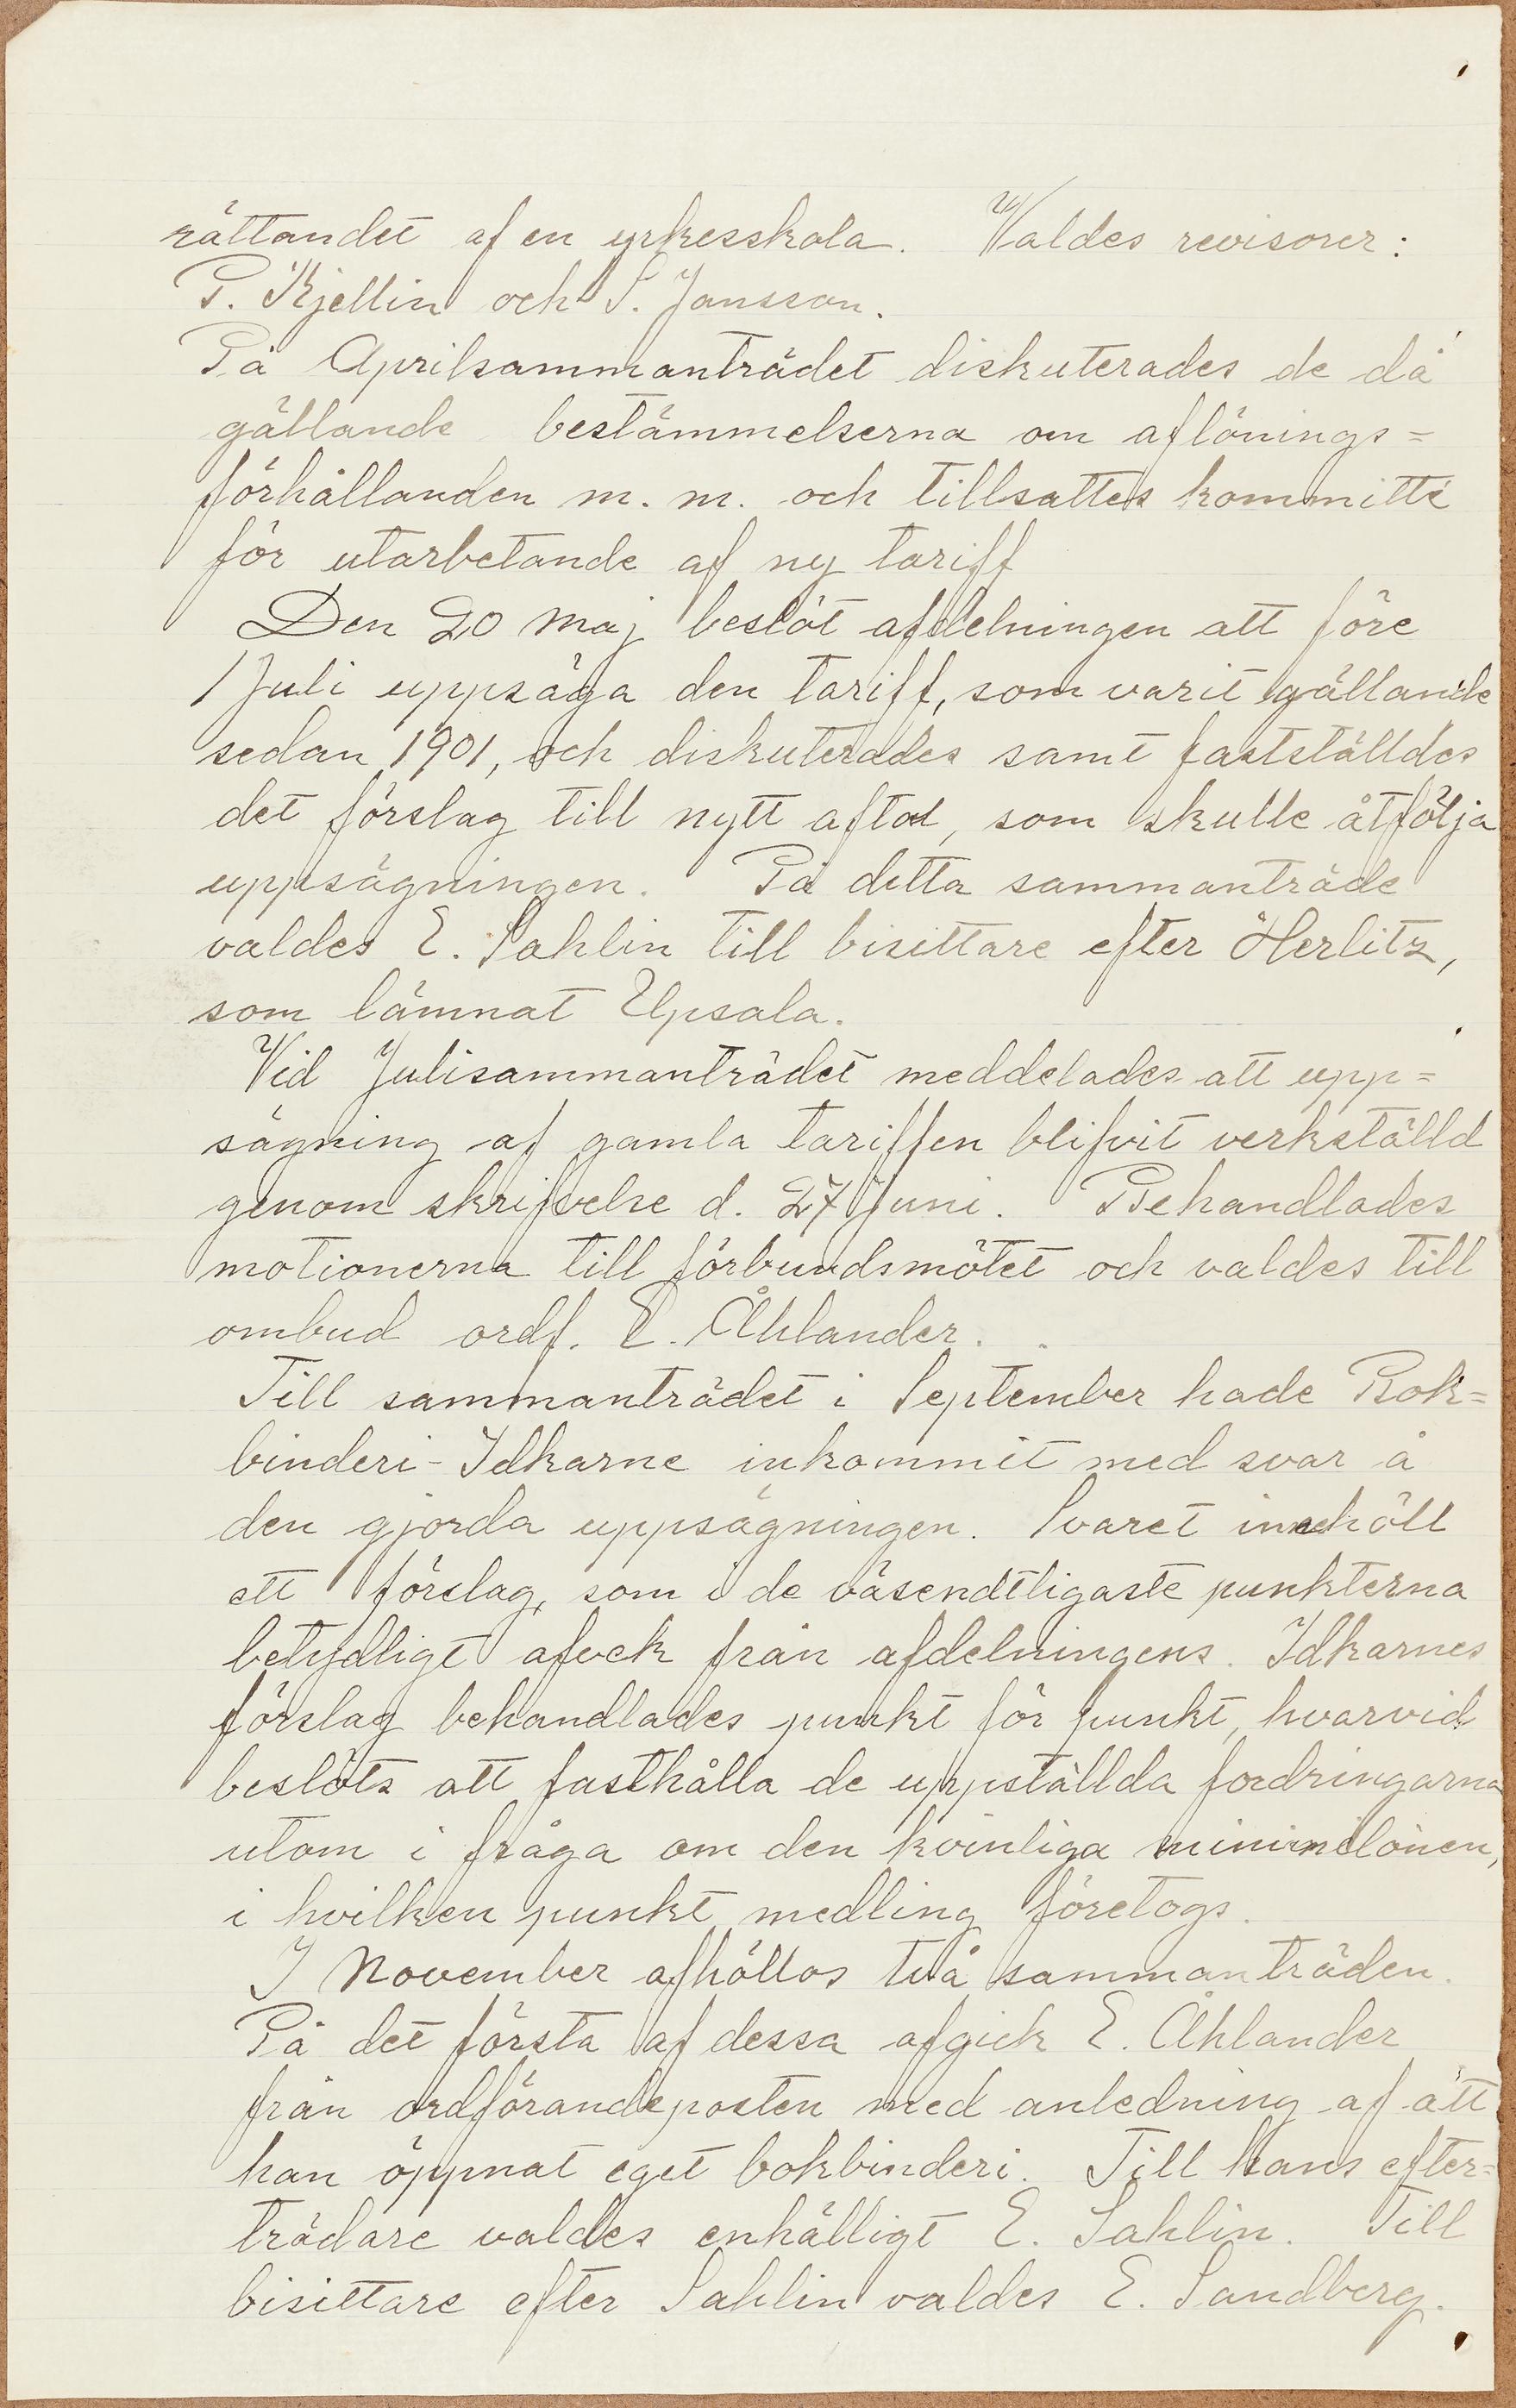 rättandet af en yrkesskola. Valdes revisorer:
P. Kjellin och S. Jansson.
På Aprilsammanträdet diskuterades de då
gällande bestämmelserna om aflönings=
förhållanden m. m. och tillsattes kommitté
för utarbetande af ny tariff
Den 20 Maj beslöt afdelningen att före
1 Juli uppsäga den tariff, som varit gällande
sedan 1901, och diskuterades samt fastställdes
det förslag till nytt aftal, som skulle åtfölja
uppsägningen. På detta sammanträde
valdes E. Sahlin till bisittare efter Herlitz,
som lämnat Upsala.
Vid Julisammanträdet meddelades att upp=
sägning af gamla tariffen blifvit verkställd
genom skrifvelse d. 27 Juni. Behandlades
motionerna till förbundsmötet och valdes till
ombud ordf. E. Åhlander.
Till sammanträdet i September hade Bok=
binderi-Idkarne inkommit med svar å
den gjorda uppsägningen. Svaret innehöll
ett förslag, som i de väsendtligaste punkterna
betydligt afvek från afdelningens. Idkarnes
förslag behandlades punkt för punkt, hvarvid
beslöts att fasthålla de uppställda fordringarna
utom i fråga om den kvinliga minimilönen,
i hvilken punkt medling företogs.
I November afhöllos två sammanträden.
På det första af dessa afgick E. Åhlander
från ordförandeposten med anledning af att
han öppnat eget bokbinderi. Till hans efter=
trädare valdes enhälligt E. Sahlin. Till
bisittare efter Sahlin valdes E. Sandberg.